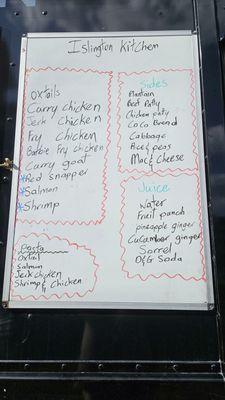 Islington Kitchen
Oxtails
Curry chicken
Jerk Chicken
Fry Chicken
Barbie Fry chicken
Curry goat
*Red snapper
*Salmon
*Shrimp
Pasta
Oxtail
Salmon
Jerk chicken
Shrimp & Chicken
Sides
Plantain
Beef Patty
Chicken patty
CoCo Bread
Cabbage
Rice & peas
Mac & Cheese
Juice
Water
Fruit punch
pineapple ginger
Cucumber ginger
Sorrel
D&G Soda